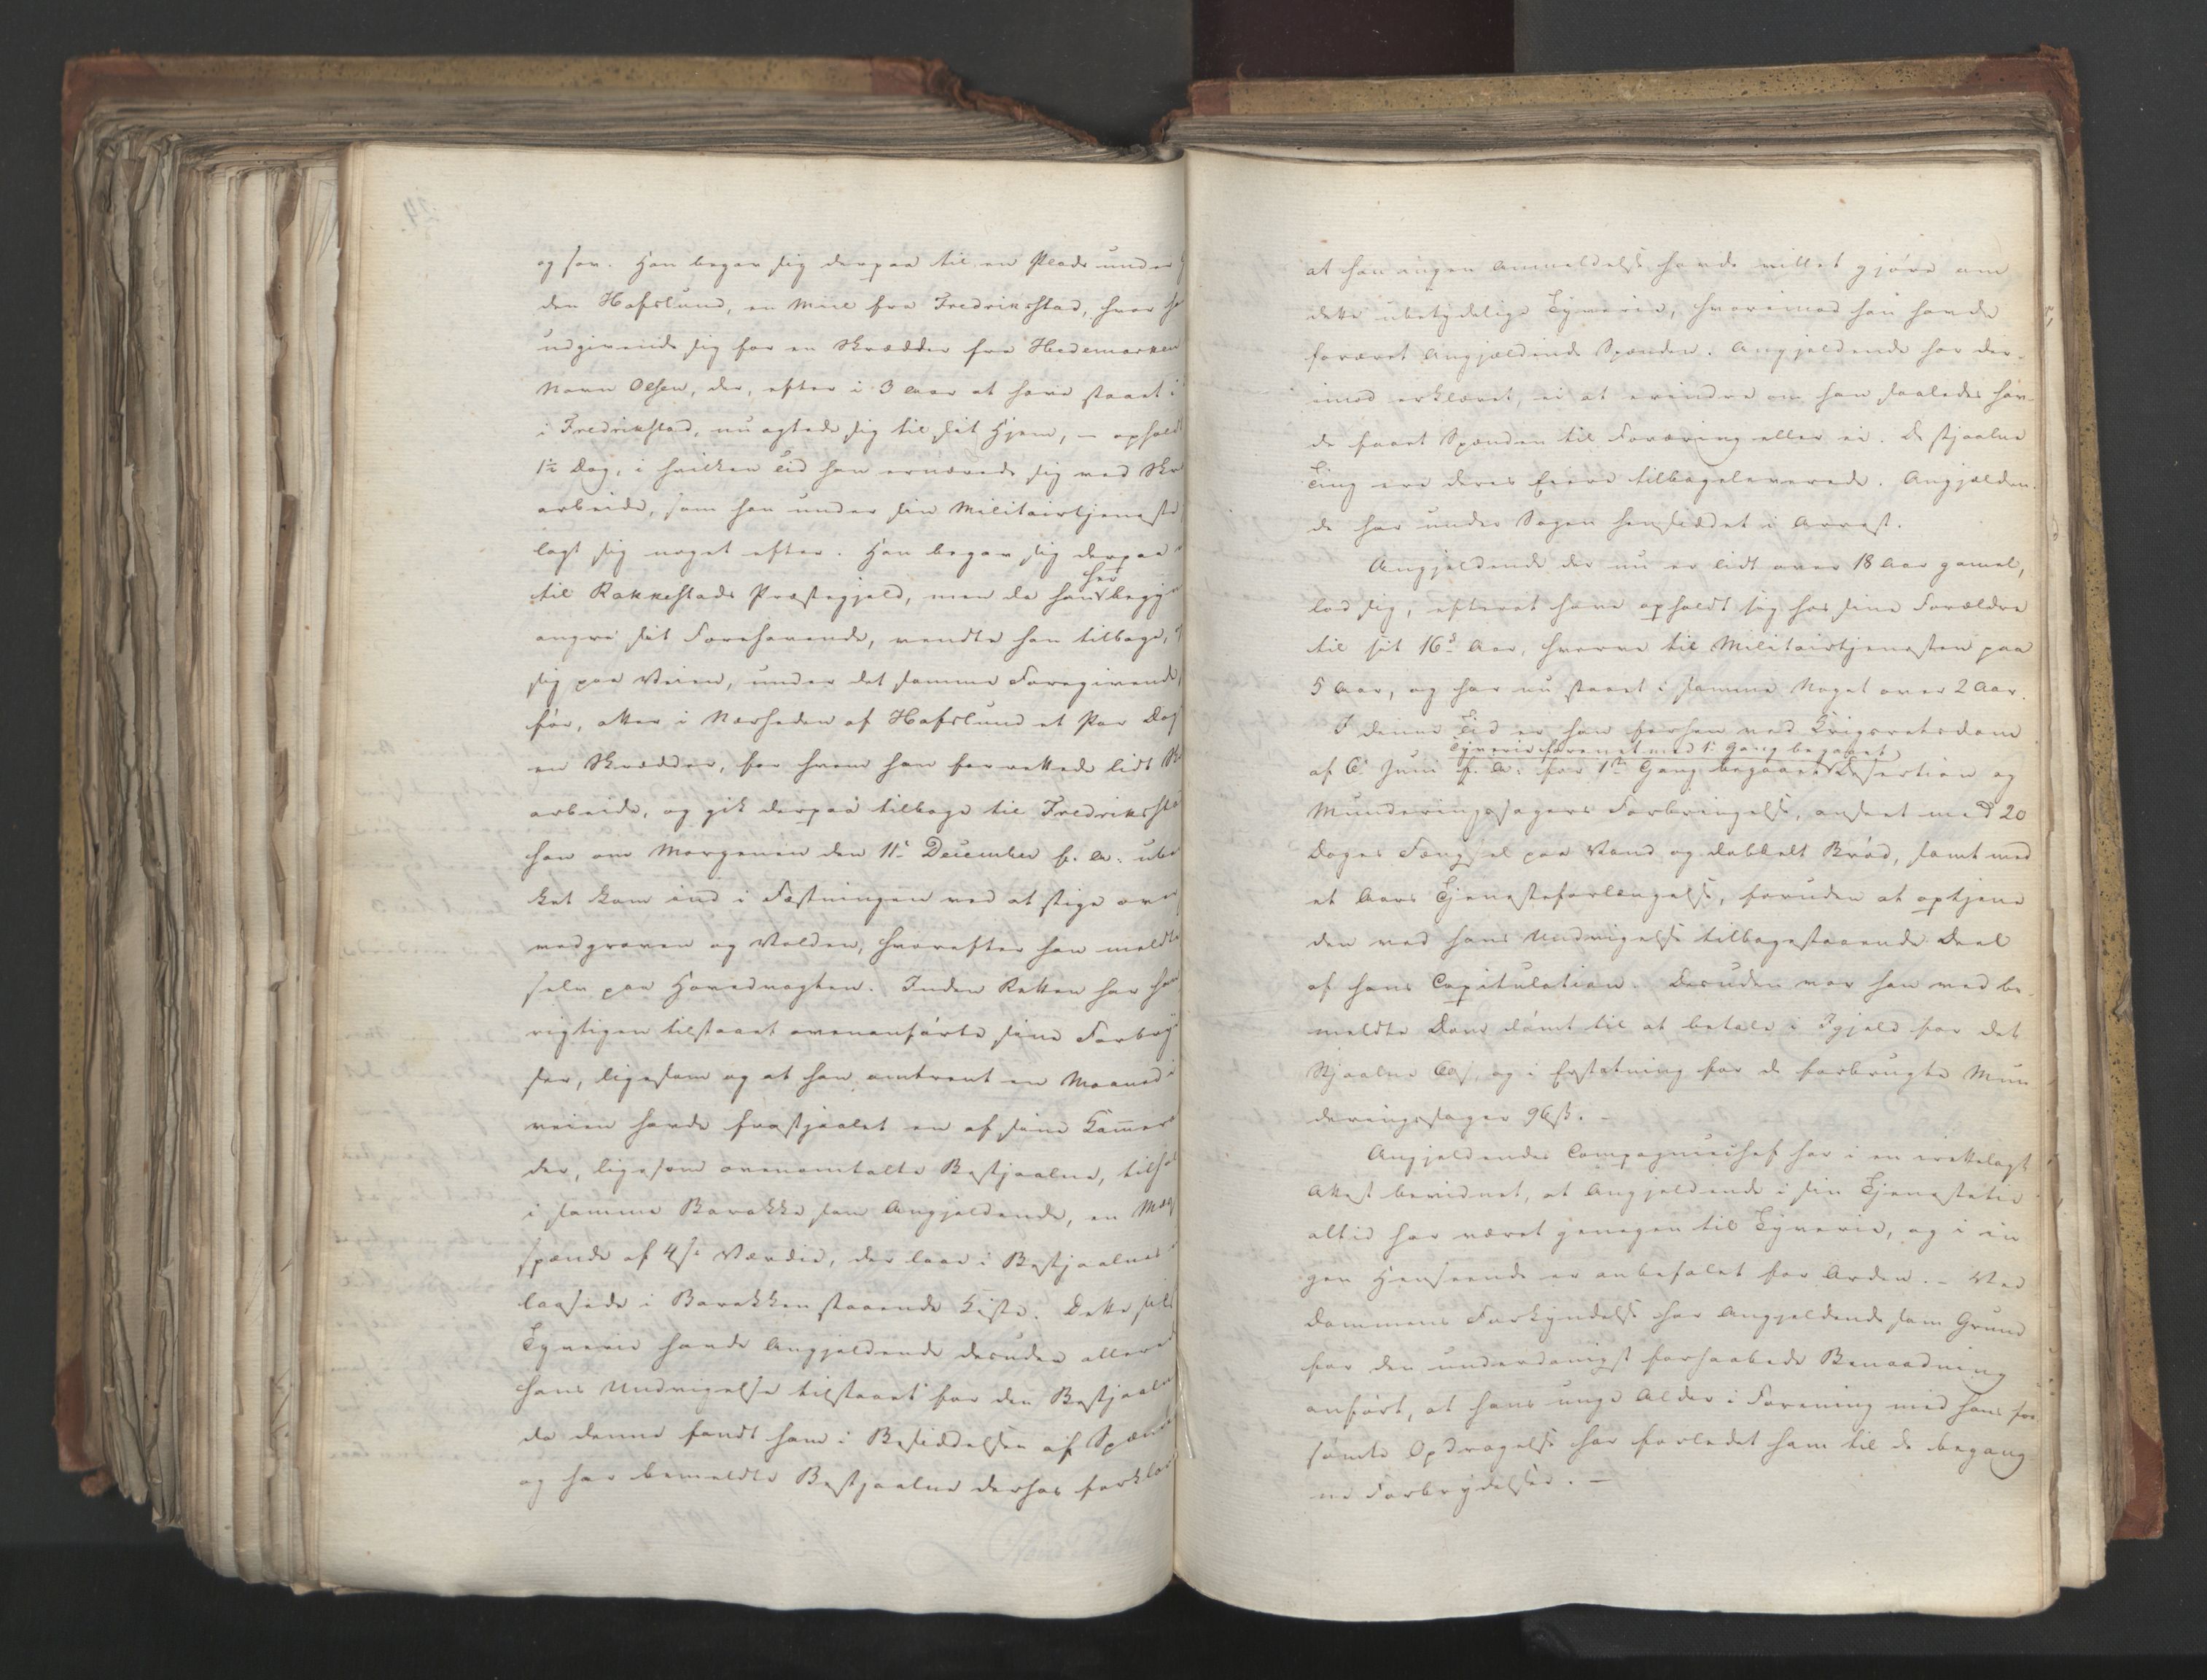 og sov. Han begav sig derpaa til en Plads under
den Hafslund, en Miil fra Fredrikstad, hvor
udgivende sig for en Skrædder fra Hedemarken
Navn Olsen, der, efter i 3 Aar at have staaet i
i Fredrikstad, nu agtede sig til sit Hjem, – opholdt
1½ Dag, i hvilken Tid han ernærede sig ved
arbeide, som han under sin Militairtjeneste
lagt sig noget efter. Han begav sig derpaa
til Rakkestads Præstegjeld, men da han her
angre sit Forehavende, vendte han tilbage,
sig paa Veien, under det samme Foregivende,
før, atter i Nærheden af Hafslund et Par Dage
en Skrædder, for hvem han forrettede lidt
arbeide, og gik derpaa tilbage til Fredrikstad
han om Morgenen den 11te December f. A.
ket kom ind i Fæstningen ved at stige over
vedgraven og Volden, hvorefter han meldte
selv paa Hovedvagten. Inden Retten har han
rigtigen tilstaaet ovenanførte sine
ser, ligesom og at han omtrent en Maaned
veien havde frastjaalet en af sine Kammera
der, ligesom ovenomtalte Bestjaalne,
i samme Barakke som Angjeldende, en
spænde af 4 s Værdie, der laae i Bestjaalnes
laasede i Barakken staaende Kiste. Dette
Tyverie havde Angjeldende desuden allerede
hans Undvigelse tilstaaet for den Bestjaalne
da denne fandt ham i Besiddelsen af
og har bemeldte Bestjaalne derhos
at han ingen Anmeldelse havde villet gjøre om
dette ubetydelige Tyverie, hvorimod han havde
foræret Angjældende Spænden. Angjeldende har der-
imod erklæret, ei at erindre om han saaledes hav-
de faaet Spænden til Foræring eller ei. De stjaalne
Ting ere deres Eiere tilbageleverede. Angjælden-
de har under Sagen hensiddet i Arrest.
Angjeldende der nu er lidt over 18 Aar gamel,
lod sig, efterat have opholdt sig hos sine Forældre
til sit 16de Aar, hverve til Militairtjenesten paa
5 Aar, og har nu staaet i samme Noget over 2 Aar.
I denne Tid er han forhen ved Krigsretsdom
Tyverie forenet med 1ste Gang begaaet
af 6te Juni f. A. for 1ste Gang begaaet Desertion og
Munderingssagers Forbringelse, anseet med 20
Dages Fængsel paa Vand og dobbelt Brød, samt med
et Aars Tjenesteforlængelse, foruden at optjene
den ved hans Undvigelse tilbagestaaende Deel
af hans Capitulation. Desuden var han ved be-
meldte Dom dømt til at betale i Igjeld for det
Stjaalne og i Erstatning for de forbrugte Mun
deringssager 96 ß. –
Angjeldendes Compagniechef har i en irettelagt
Attest bevidnet, at Angjeldende i sin Tjenestetid
altid har været genegen til Tyverie, og i in
gen Henseende er anbefalet for Orden. – Ved
Dommens Forkyndelse har Angjeldende som Grund
for den underdanigst forhaabede Benaadning
anført, at hans unge Alder i Forening med hans for
sømte Opdragelse har forledet ham til de begang
ne Forbrydelser. –